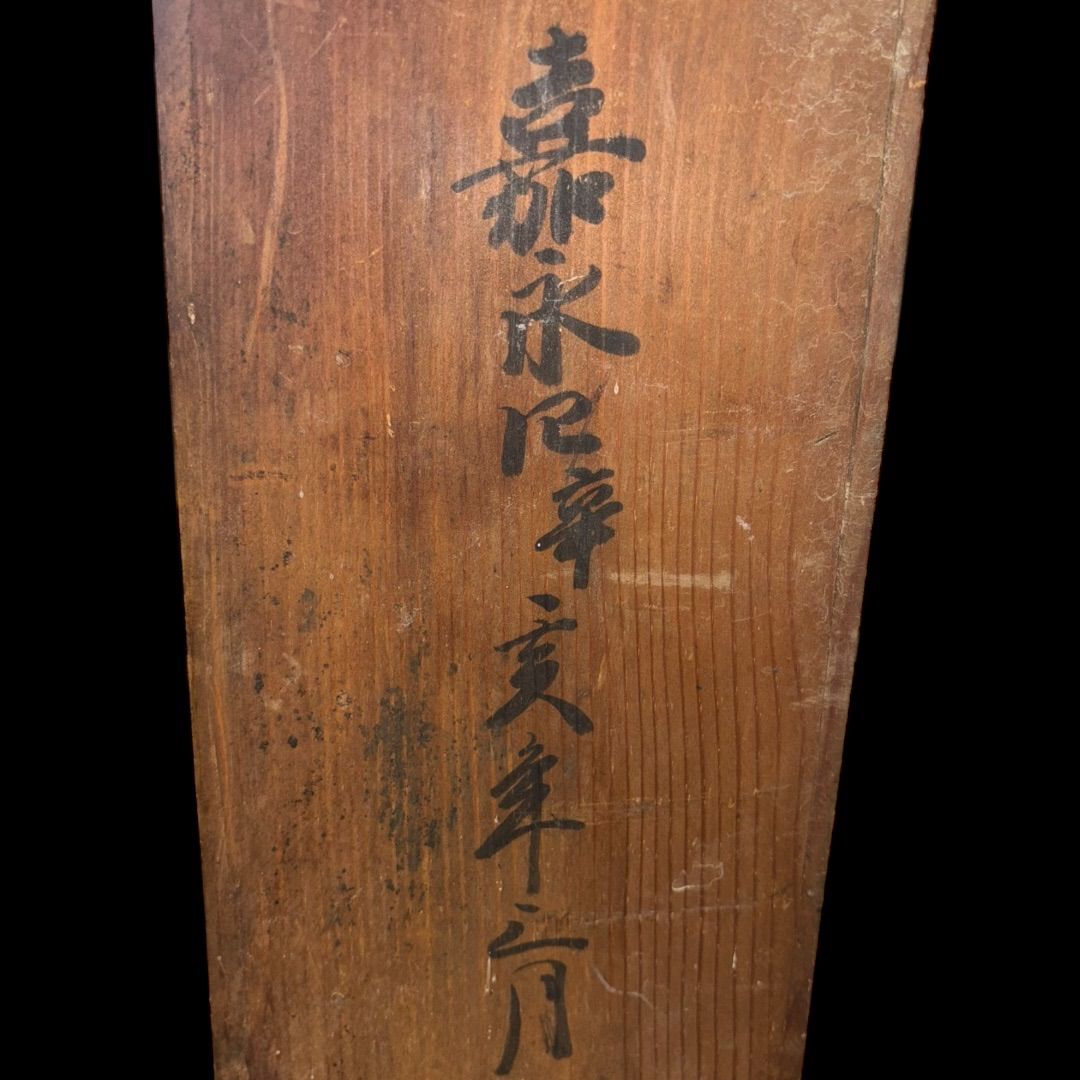 嘉永四辛亥年三月